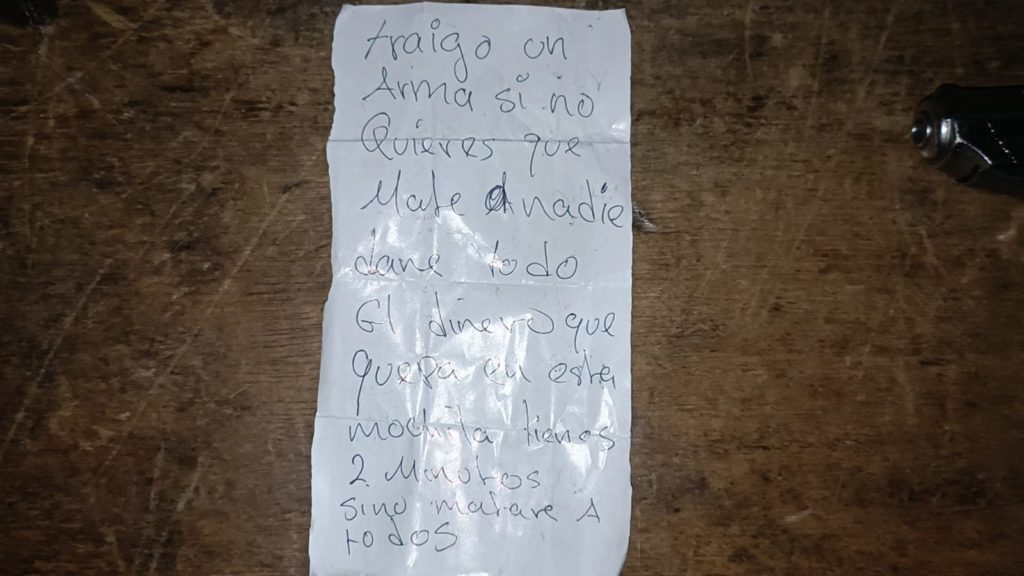 traigo un
Arma si no
Quieres que
Mate A nadie
dame todo
El dinero que
quepa en esta
mochila tienes
2 Minutos
sino matare A
todos